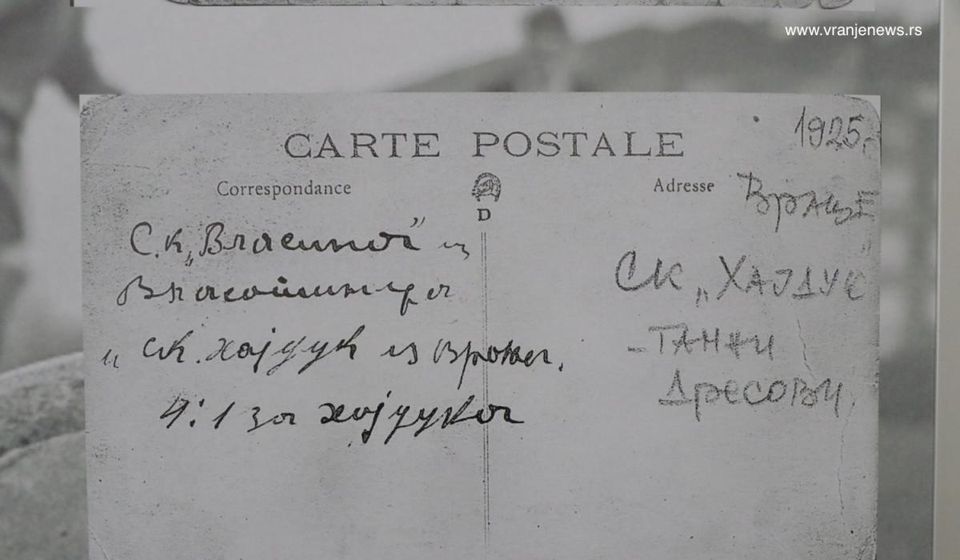 www.vranjenews.rs
CARTE POSTALE
1925.
Correspondance
Adresse
D
С.к. „Власина" из
Власотинца
и ск. хајдук из врања.
4:1 за хајдука
Врање
СК „ХАЈДУК"
- ТАМНИ
ДРЕСОВИ.